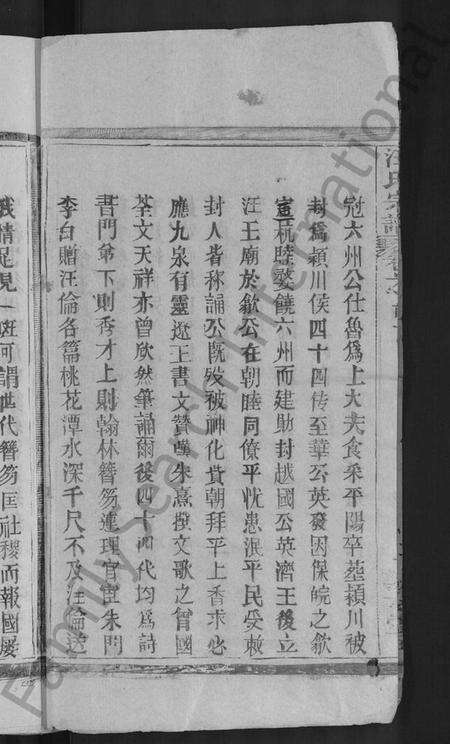 汪氏宗譜
冠六州公仕魯爲上大夫食采平陽卒葬穎川被
封爲穎川侯四十四传至華公英發因保皖之歙
宣杭睦婺饒六州而建勛封越國公英濟王後立
汪王廟於歙公在朝睦同僚平忧患泯平民受敕
封人者称誦公既殁被神化貴朝拜平上香求必
應九泉有靈逊王書文贊嘆朱熹撰文歌之曾國
荃文天祥亦曾欣然筆誦爾後四十四代均爲詩
書門弟下則秀才上則翰林簪笏連理官宦朱門
李白贈汪倫名篇桃花潭水深千尺不及汪倫送
我情足見一班可謂世代簪笏匡社稷而報國屡
FamilySearch International